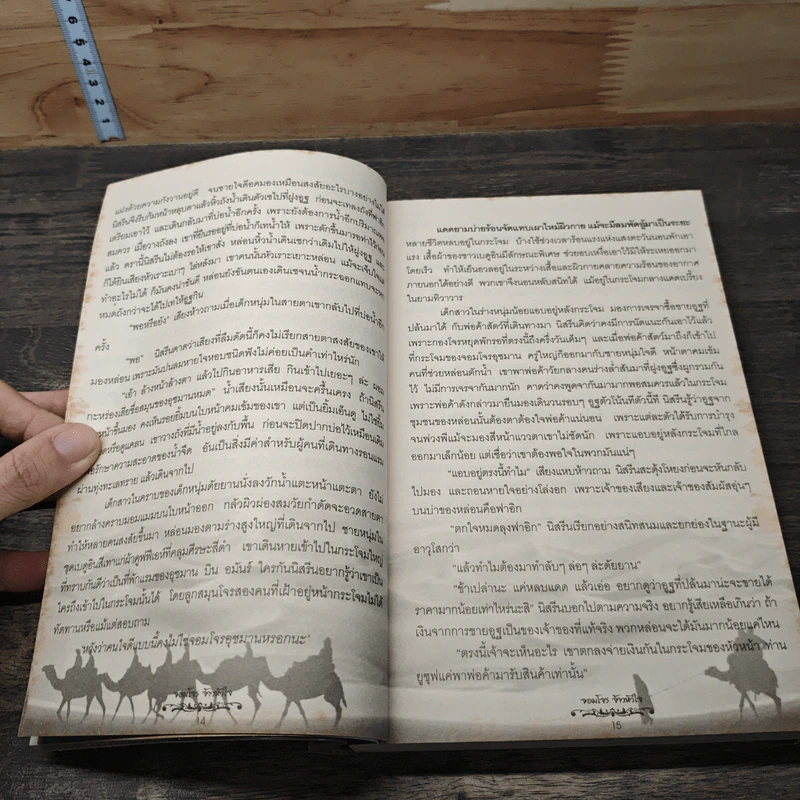 แฝงด้วยความกังวานอยู่ดี จนชายใจคือคมองเหมือนสงสัยอะไรบางอย่างในใจ
นิสรีนจึงรีบก้มหน้าหลุบตาแล้วหิ้วถังน้ำเดินตัวเซไปที่ฝูงอูฐ ก่อนจะเทลงถังที่พ่อค้า
เตรียมเอาไว้ และเดินกลับมาที่บ่อน้ำอีกครั้ง เพราะยังต้องการน้ำอีกปริมาณ
สมควร เมื่อวางถังลง เขาที่ยืนรออยู่ที่บ่อน้ำก็เทน้ำให้ เพราะตักขึ้นมารอท่าไว้
แล้ว คราวนี้นิสรีนไม่ต้องรอให้เขาสั่ง หล่อนหิ้วน้ำเดินเซกว่าเดิมไปให้ฝูงอูฐ และ
ก็ได้ยินเสียงหัวเราะเบาๆ ไล่หลังมา เขาคนนั้นหัวเราะเยาะหล่อน แม้จะเจ็บใจแต่
ทำอะไรไม่ได้ ก็มันคงน่าขันดี หล่อนยังขันตนเองเดินเซจนน้ำกระฉอกแทบจะหก
หมดถังกว่าจะได้ไปเทให้อูฐกิน
“พอหรือยัง” เสียงห้าวถามเมื่อเด็กหนุ่มในสายตาเขากลับไปที่บ่อน้ำอีก
ครั้ง
“พอ” นิสรีนคาดว่าเสียงที่ลืมดัดนี้ก็คงไม่เรียกสายตาสงสัยของเขาให้
มองหล่อน เพราะมันปนลมหายใจหอบชนิดฟังไม่ค่อยเป็นคำเท่าไหร่นัก
“เอ้า ล้างหน้าล้างตา แล้วไปกินอาหารเสีย กินเข้าไปเยอะๆ ล่ะ ผอม
กะหร่องเสียชื่อสมุนของอุชมานหมด” น้ำเสียงนั้นเหมือนจะครื้นเครง ถ้านิสรีน
เงยหน้าขึ้นเอง คงเห็นรอยยิ้มบนใบหน้าคมเข้มของเขา แต่เป็นยิ้มเอ็นดู ไม่ใช่ยิ้ม
หรือดูแคลน เขาวางถังที่มีน้ำอยู่ลงกับพื้น ก่อนจะปิดฝาบ่อไว้เหมือนเดิม
เพื่อรักษาความสะอาดของน้ำจืด อันเป็นสิ่งมีค่าสำหรับผู้คนที่เดินทางรอนแรม
ผ่านทุ่งทะเลทราย แล้วเดินจากไป
เด็กสาวในคราบของเด็กหนุ่มดัยยานนั่งลงวักน้ำแตะหน้าแตะตา ยังไม่
อยากล้างคราบมอมแมมบนใบหน้าออก กลัวผิวผ่องสมวัยกำดัดจะอวดสายตา
ทำให้หลายคนสงสัยขึ้นมา หล่อนมองตามร่างสูงใหญ่ที่เดินจากไป ชายหนุ่มใน
ชุดเบดูอินสีเทาแก่ผ้าคูฟฟีเยห์ที่คลุมศีรษะสีดำ เขาเดินหายเข้าไปในกระโจมใหญ่
ที่ทราบกันดีว่าเป็นที่พักแรมของอุชมาน บิน อมันร์ ใครกันนิสรีนอยากรู้ว่าเขาเป็น
ใครถึงเข้าไปในกระโจมนั้นได้ โดยลูกสมุนโจรสองคนที่เฝ้าอยู่หน้ากระโจมไม่ได้
ทัดทานหรือแม้แต่สอบถาม
หวังว่าคนใจดีแบบนี้คงไม่ใช่จอมโจรอุชมานหรอกนะ
จอมโจร จ้าวหัวใจ
14
แดดยามบ่ายร้อนจัดแทบเผาไหม้ผิวกาย แม้จะมีลมพัดซู้มาเป็นระยะ
หลายชีวิตหลบอยู่ในกระโจม บ้างใช้ช่วงเวลาร้อนแรงแห่งแสงตะวันนอนพักเอา
แรง เสื้อผ้าของชาวเบดูอินมีลักษณะพิเศษ ช่วยอบเหงื่อเอาไว้มิให้ระเหยออกมา
โดยเร็ว ทำให้เย็นอวลอยู่ในระหว่างเสื้อและผิวกายคลายความร้อนของอากาศ
ภายนอกได้อย่างดี พวกเขาจึงนอนหลับสนิทได้ แม้อยู่ในกระโจมกลางแดดเปรี้ยง
ในยามทิวาวาร
เด็กสาวในร่างหนุ่มน้อยแอบอยู่หลังกระโจม มองการเจรจาซื้อขายอูฐที่
ปล้นมาได้ กับพ่อค้าสัตว์ที่เดินทางมา นิสรีนคิดว่าคงมีการนัดแนะกันเอาไว้แล้ว
เพราะกองโจรหยุดพักรอที่ตรงนี้ถึงครึ่งวันเต็มๆ และเมื่อพ่อค้าสัตว์มาถึงก็เข้าไป
ที่กระโจมของจอมโจรอุชมาน ครู่ใหญ่ก็ออกมากับชายหนุ่มใจดี หน้าตาคมเข้ม
คนที่ช่วยหล่อนตักน้ำ เขาพาพ่อค้าวัยกลางคนร่างล่ำสันมาที่ฝูงอูฐซึ่งผูกรวมกัน
ไว้ ไม่มีการเจรจากันมากนัก คาดว่าคงพูดจากันมามากพอสมควรแล้วในกระโจม
เพราะพ่อค้าดังกล่าวมายืนมองเดินวนรอบๆ อูฐตัวโน้นทีตัวนี้ที นิสรีนรู้ว่าอูฐจาก
ชุมชนของหล่อนนั้นต้องตาต้องใจพ่อค้าแน่นอน เพราะแต่ละตัวได้รับการบำรุง
จนพ่วงพีแม้จะมองสีหน้าแววตาเขาไม่ชัดนัก เพราะแอบอยู่หลังกระโจมที่ไกล
ออกมาเล็กน้อย แต่เชื่อว่าเขาต้องพอใจในพวกมันแน่ๆ
“แอบอยู่ตรงนี้ทำไม” เสียงแหบห้าวถาม นิสรีนสะดุ้งโหยงก่อนจะหันกลับ
ไปมอง และถอนหายใจอย่างโล่งอก เพราะเจ้าของเสียงและเจ้าของสัมผัสอุ่นๆ
บนบ่าของหล่อนคือฟาอิก
“ตกใจหมดลุงฟาอิก” นิสรีนเรียกอย่างสนิทสนมและยกย่องในฐานะผู้มี
อาวุโสกว่า
“แล้วทำไมต้องมาทำลับๆ ล่อๆ ล่ะดัยยาน”
“ข้าเปล่านะ แค่หลบแดด แล้วเอ่อ อยากดูว่าอูฐที่ปล้นมาน่ะจะขายได้
ราคามากน้อยเท่าไหร่นะสิ” นิสรีนบอกไปตามความจริง อยากรู้เสียเหลือเกินว่า ถ้า
เงินจากการขายอูฐเป็นของเจ้าของที่แท้จริง พวกหล่อนจะได้มันมากน้อยแค่ไหน
“ตรงนี้เจ้าจะเห็นอะไร เขาตกลงจ่ายเงินกันในกระโจมของหัวหน้า ท่าน
ยูซุฟแค่พาพ่อค้ามารับสินค้าเท่านั้น”
จอมโจร จ้าวหัวใจ
15